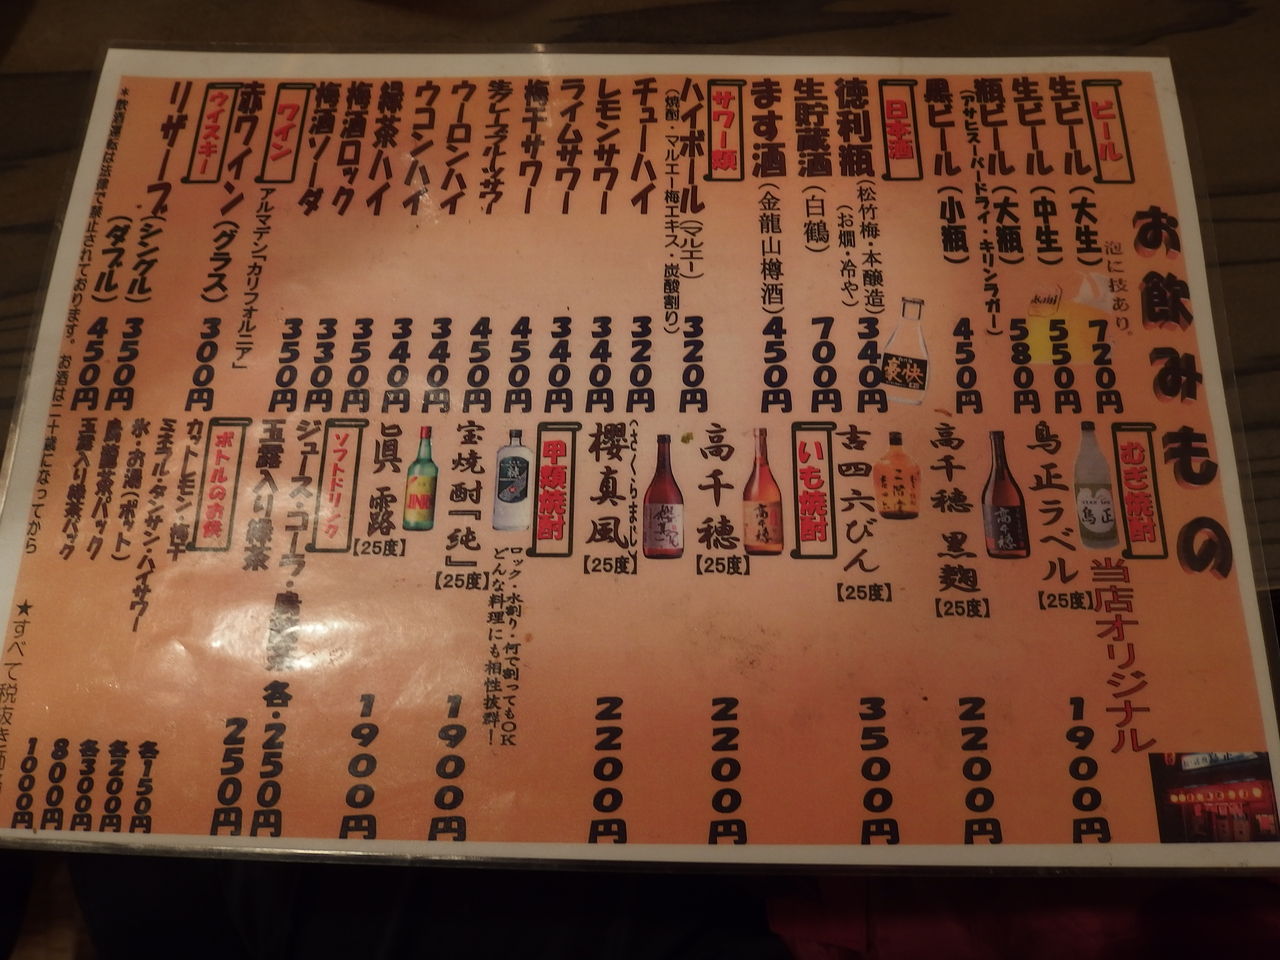 お飲みもの
ビール
泡に技あり。
生ビール(大生) 720円
生ビール(中生) 550円
瓶ビール(大瓶) 580円
(アサヒスーパードライ・キリンラガー)
黒ビール(小瓶) 450円
日本酒
徳利瓶(松竹梅・本醸造) 340円
(お燗・冷や)
生貯蔵酒(白鶴) 700円
ます酒(金龍山樽酒) 450円
サワー類
ハイボール(マルエー) 320円
(焼酎・マルエー梅エキス・炭酸割り)
チューハイ 320円
レモンサワー 340円
ライムサワー 340円
梅干サワー 450円
生グレープフルーツサワー 450円
ウーロンハイ 340円
ウコンハイ 340円
緑茶ハイ 340円
梅酒ロック 350円
梅酒ソーダ 330円
ワイン 350円
アルマデン「カリフォルニア」
赤ワイン(グラス) 300円
ウイスキー
リザーブ(シングル) 350円
(ダブル) 450円
*飲酒運転は法律で禁止されております。お酒は二十歳になってから
むぎ焼酎
当店オリジナル
鳥正ラベル【25度】 1900円
高千穂 黒麹【25度】 2200円
吉四六びん【25度】 3500円
いも焼酎
高千穂【25度】 2200円
(さくらまじ)
櫻真風【25度】 2200円
甲類焼酎
ロック・水割り・何で割ってもOK
どんな料理にも相性抜群!
宝焼酎『純』【25度】 1900円
眞露【25度】 1900円
ソフトドリンク
ジュース・コーラ・烏龍茶 各・250円
玉露入り緑茶 250円
ボトルのお供
カットレモン・梅干 各150円
ミネラル・タンサン・ハイサワー 各200円
氷・お湯(ポット) 各300円
烏龍茶パック 800円
玉露入り緑茶パック 1000円
★すべて税抜き